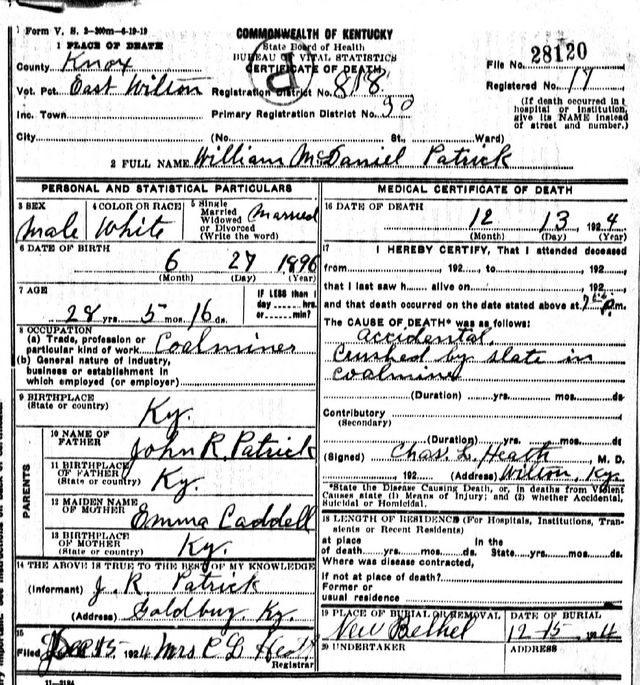 Form V. S. 2-200m-6-19-19
COMMONWEALTH OF KENTUCKY
State Board of Health
BUREAU OF VITAL STATISTICS
CERTIFICATE OF DEATH
1 PLACE OF DEATH
County Knox
File No. 28120
Vot. Pct. East Wilton Registration District No. 818
Registered No. 17
Inc. Town Primary Registration District No. 30
(If death occurred in a hospital or institution, give its NAME instead of street and number.)
City (No. St., Ward)
2 FULL NAME William McDaniel Patrick
PERSONAL AND STATISTICAL PARTICULARS
3 SEX Male
4 COLOR OR RACE White
5 Single Married Widowed or Divorced (Write the word) Married
6 DATE OF BIRTH
6 27 1896
(Month) (Day) (Year)
7 AGE
28 yrs. 5 mos. 16 ds.
IF LESS than 1 day hrs. or min?
8 OCCUPATION
(a) Trade, profession or particular kind of work Coalminer
(b) General nature of industry, business or establishment in which employed (or employer)
9 BIRTHPLACE (State or country) Ky.
PARENTS
10 NAME OF FATHER John R. Patrick
11 BIRTHPLACE OF FATHER (State or country) Ky.
12 MAIDEN NAME OF MOTHER Emma Caddell
13 BIRTHPLACE OF MOTHER (State or country) Ky.
14 THE ABOVE IS TRUE TO THE BEST OF MY KNOWLEDGE
(Informant) J. R Patrick
(Address) Goldbug, Ky.
15
Filed Dec 15 1924 Mrs C L Heath
Registrar
11-3184
MEDICAL CERTIFICATE OF DEATH
16 DATE OF DEATH
12 13 1924
(Month) (Day) (Year)
17 I HEREBY CERTIFY, That I attended deceased
from , 192 , to , 192 ,
that I last saw h alive on , 192 ,
and that death occurred on the date stated above at P.m.
The CAUSE OF DEATH* was as follows:
Accidental,
Crushed by slate in
coalmine
(Duration) yrs. mos. ds
Contributory (Secondary)
(Duration) yrs. mos. ds
(Signed) Chas. L. Heath M. D.
192 (Address) Wilton, Ky.
*State the Disease Causing Death, or, in deaths from Violent Causes state (1) Means of Injury; and (2) whether Accidental, Suicidal or Homicidal.
18 LENGTH OF RESIDENCE (For Hospitals, Institutions, Transients or Recent Residents)
at place of death yrs. mos. ds. In the State yrs. mos. ds.
Where was disease contracted,
If not at place of death?
Former or usual residence
19 PLACE OF BURIAL OR REMOVAL New Bethel
DATE OF BURIAL 12-15, 1924
20 UNDERTAKER
ADDRESS